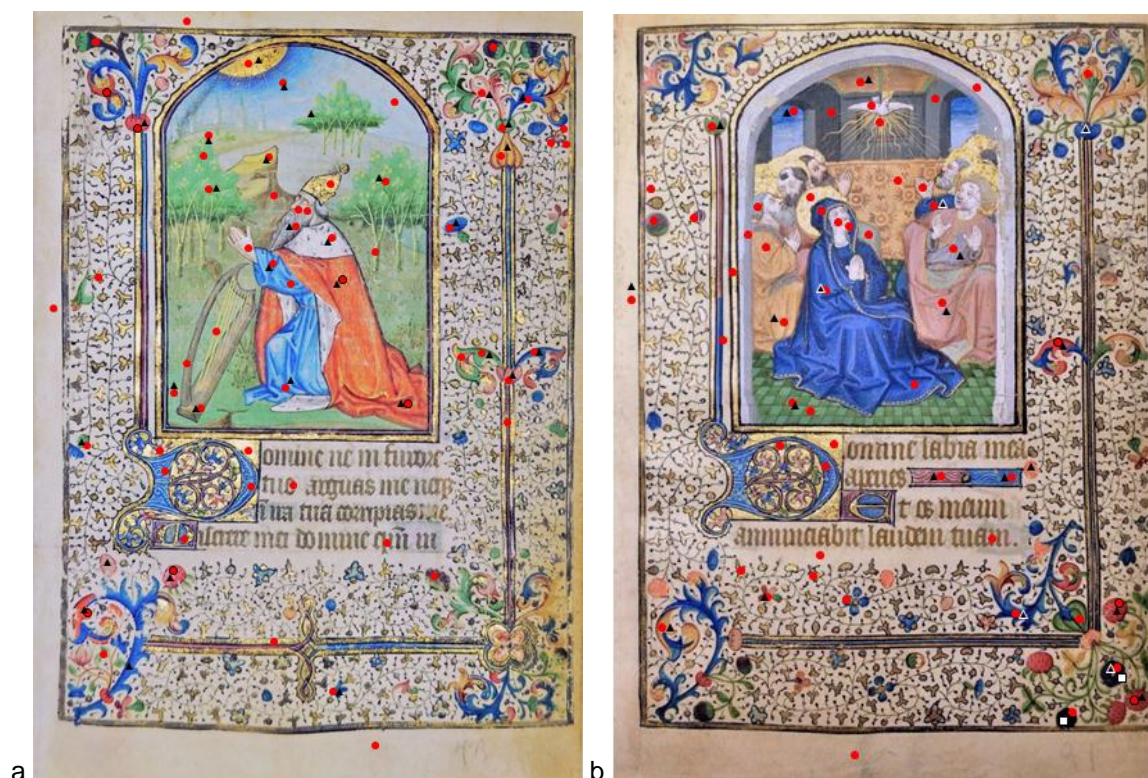 Domine ne in furore
tuo arguas me neq
in ira tua corripias me
Miserere mei domine qm̄ in
a
Domine labia mea
aperies
Et os meum
annunciabit laudem tuam.
b